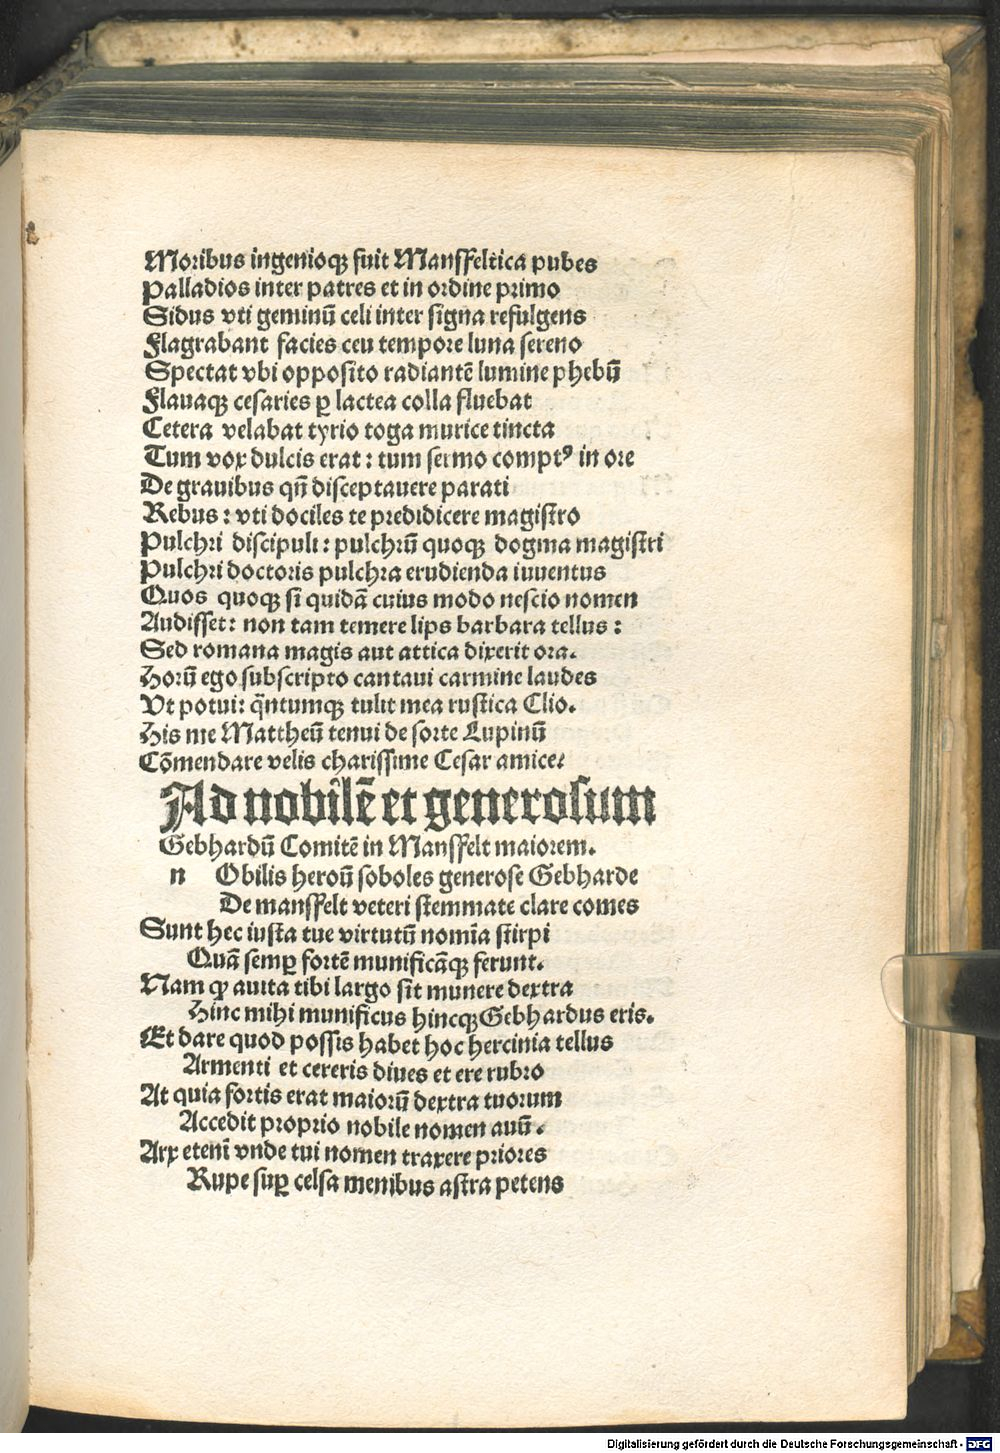 Moribus ingenioqꝫ fuit Mansffeltica pubes
Palladios inter patres et in ordine primo
Sidus vti geminū celi inter signa refulgens
Flagrabant facies ceu tempore luna sereno
Spectat vbi opposito radiantē lumine phebū
Flauaqꝫ cesaries ꝑ lactea colla fluebat
Cetera velabat tyrio toga murice tincta
Tum vox dulcis erat: tum sermo comptꝰ in ore
De grauibus qn̄ disceptauere parati
Rebus: vti dociles te predidicere magistro
Pulchri discipuli: pulchrū quoqꝫ dogma magistri
Pulchri doctoris pulchra erudienda iuuentus
Quos quoqꝫ si quidā cuius modo nescio nomen
Audisset: non tam temere lips barbara tellus:
Sed romana magis aut attica dixerit ora.
Horū ego subscripto cantaui carmine laudes
Vt potui: q̄ntumqꝫ tulit mea rustica Clio.
His me Mattheū tenui de sorte Lupinū
Cōmendare velis charissime Cesar amice.
Ad nobilē et generosum
Gebhardū Comitē in Mansffelt maiorem.
n Obilis heroū soboles generose Gebharde
De mansffelt veteri stemmate clare comes
Sunt hec iusta tue virtutū nomīa stirpi
Quā semꝑ fortē munificāqꝫ ferunt.
Nam ꝙ auita tibi largo sit munere dextra
Hinc mihi munificus hincqꝫ Gebhardus eris.
Et dare quod possis habet hoc hercinia tellus
Armenti et cereris diues et ere rubro
At quia fortis erat maiorū dextra tuorum
Accedit proprio nobile nomen auū.
Arx etenī vnde tui nomen traxere priores
Rupe suꝑ celsa menibus astra petens
Digitalisierung gefördert durch die Deutsche Forschungsgemeinschaft - DFG